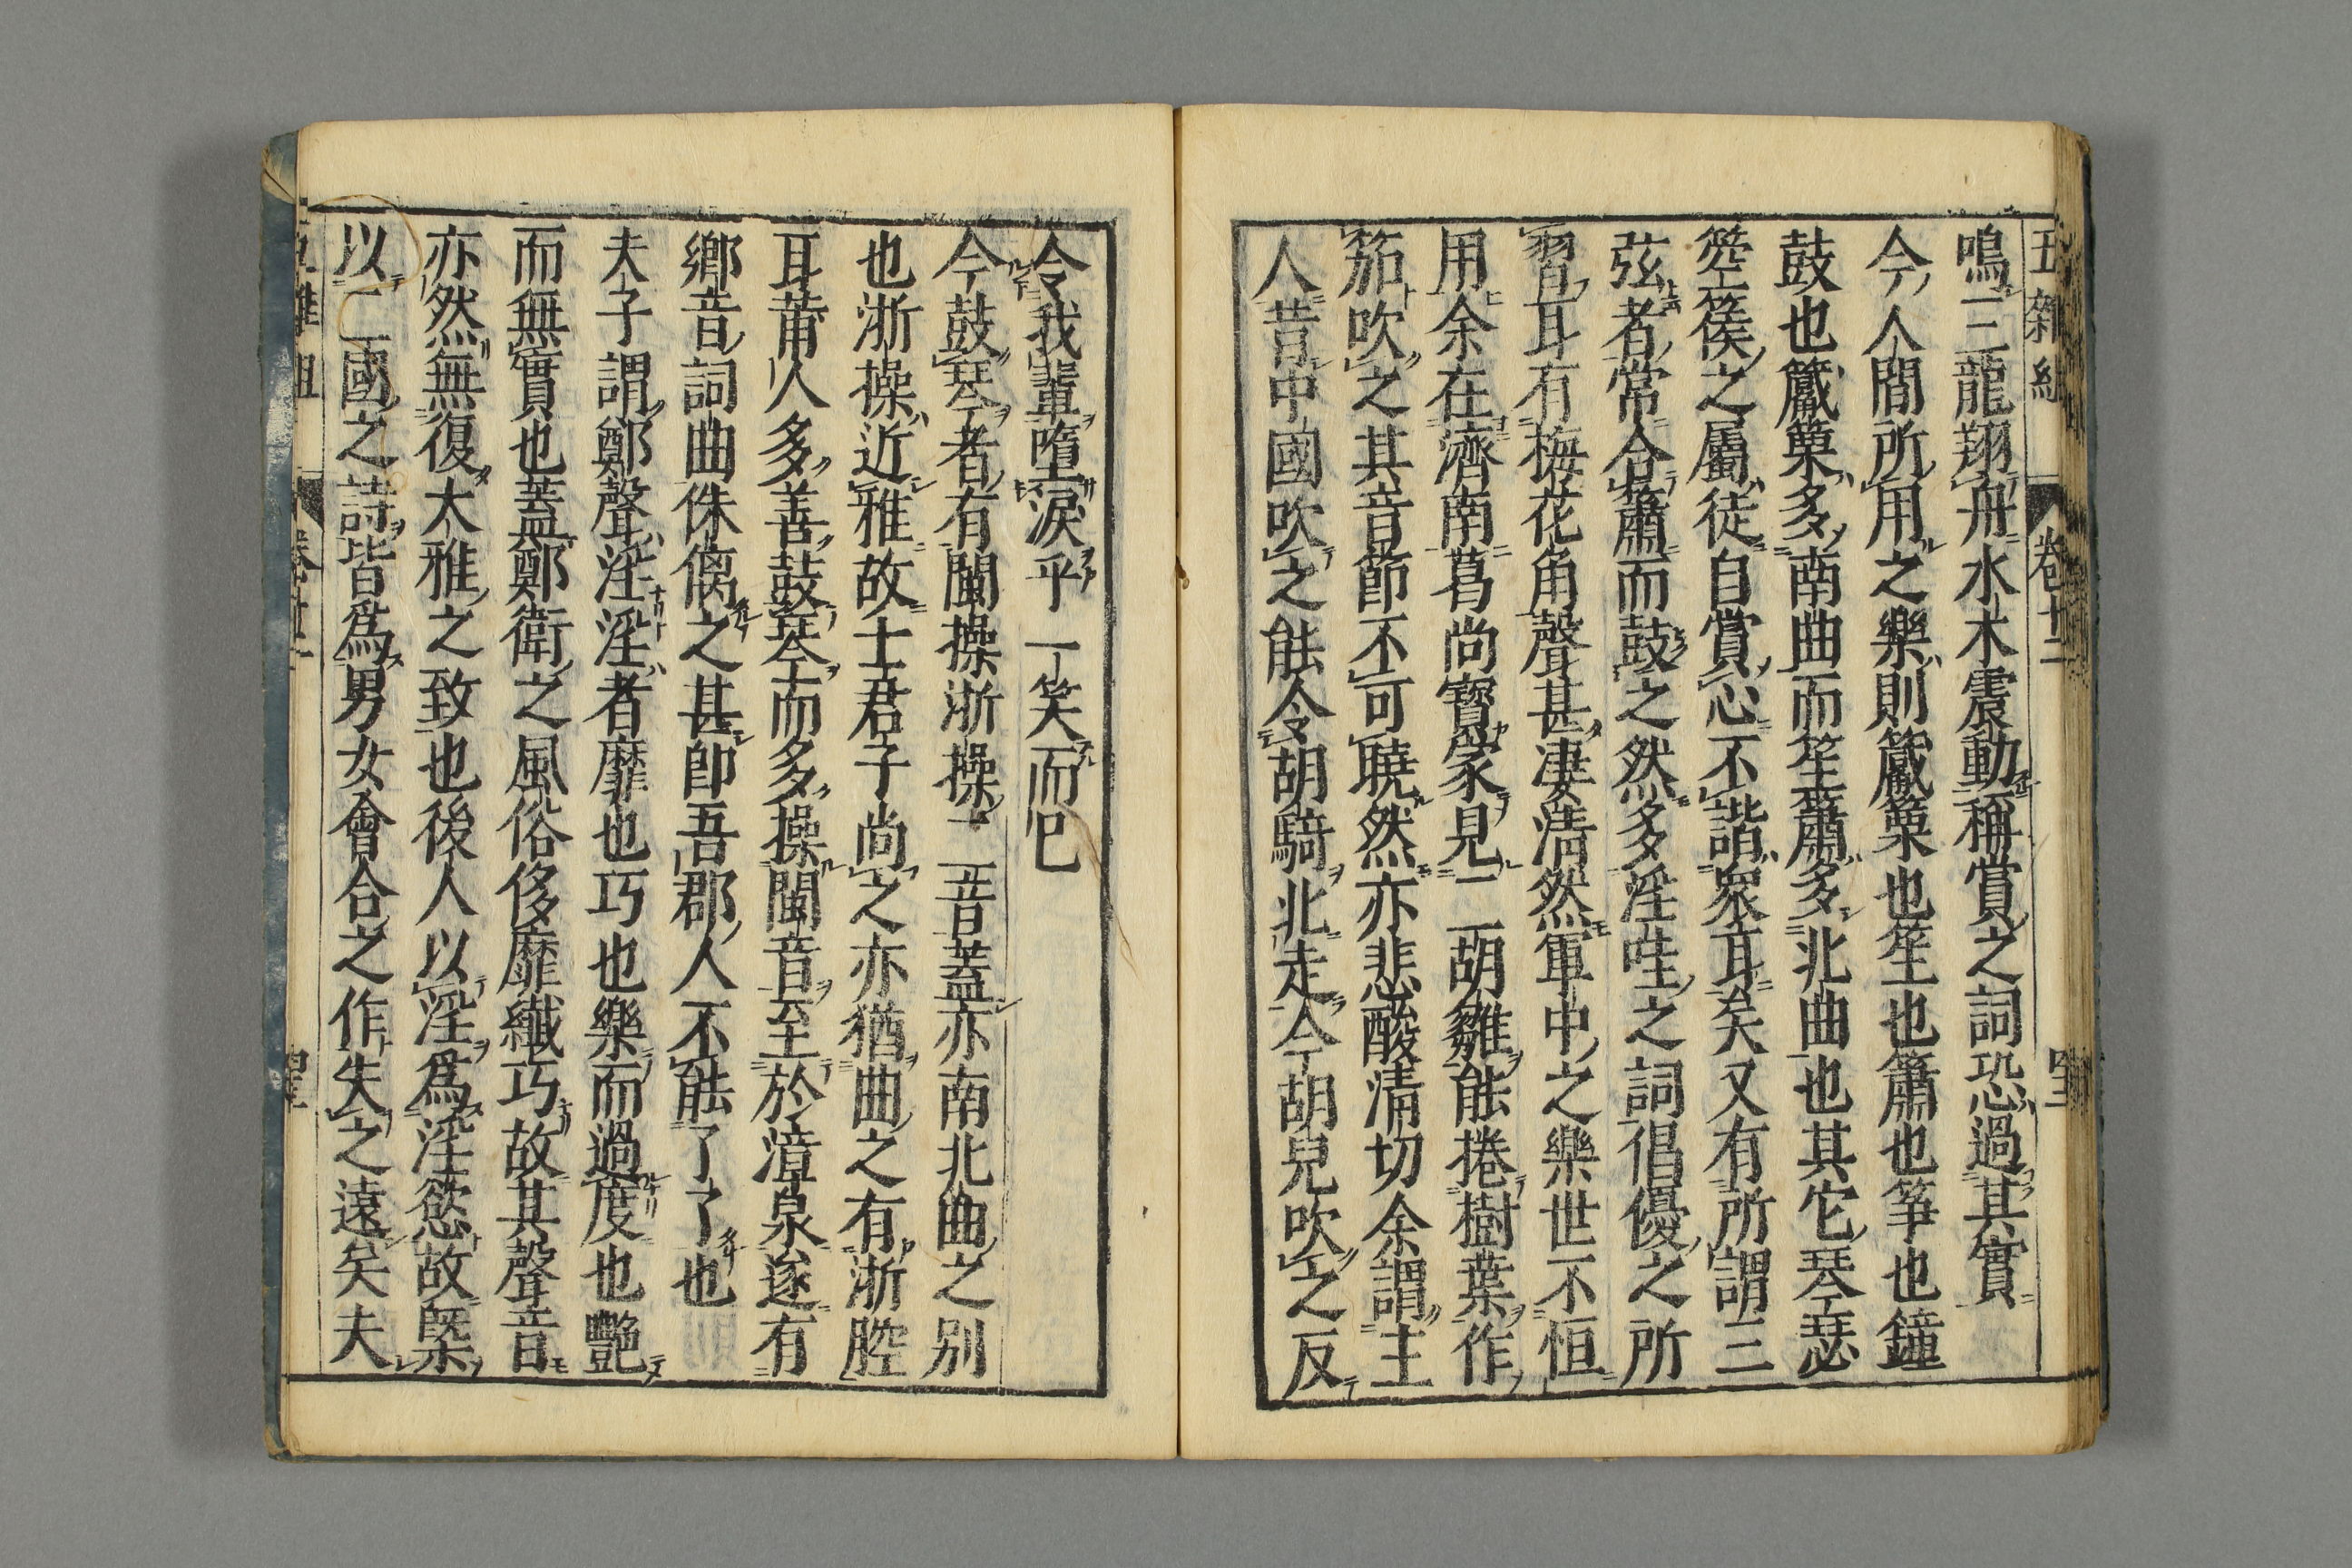 五雜組 卷十二
鳴二龍翔舟水木震動稱賞之詞恐過其實
今人間所用之樂則觱篥也笙也簫也箏也鐘
鼓也觱篥多南曲而笙簫多北曲也其它琴瑟
箜篌之屬徒自賞心不諧衆耳矣又有所謂三
弦者常合簫而鼓之然多淫哇之詞倡優之所
習耳有梅花角聲甚凄清然軍中之樂世不恒
用余在濟南葛尚寶家見二胡雛能捲樹葉作
笳吹之其音節不可曉然亦悲酸清切余謂主
人昔中國吹之能令胡騎北走今胡兒吹之反
令我輩墮淚乎一笑而已
今鼓琴者有閩操浙操二音蓋亦南北曲之別
也浙操近雅故士君子尚之亦猶曲之有浙腔
耳莆人多善鼓琴而多操閩音至於漳泉遂有
鄉音詞曲侏𠌯之甚即吾郡人不能了了也
夫子謂鄭聲淫淫者靡也巧也樂而過度也艷
而無實也蓋鄭衛之風俗侈靡纖巧故其聲音
亦然無復大雅之致也後人以淫爲淫慾故槩
以二國之詩皆爲男女會合之作失之遠矣夫